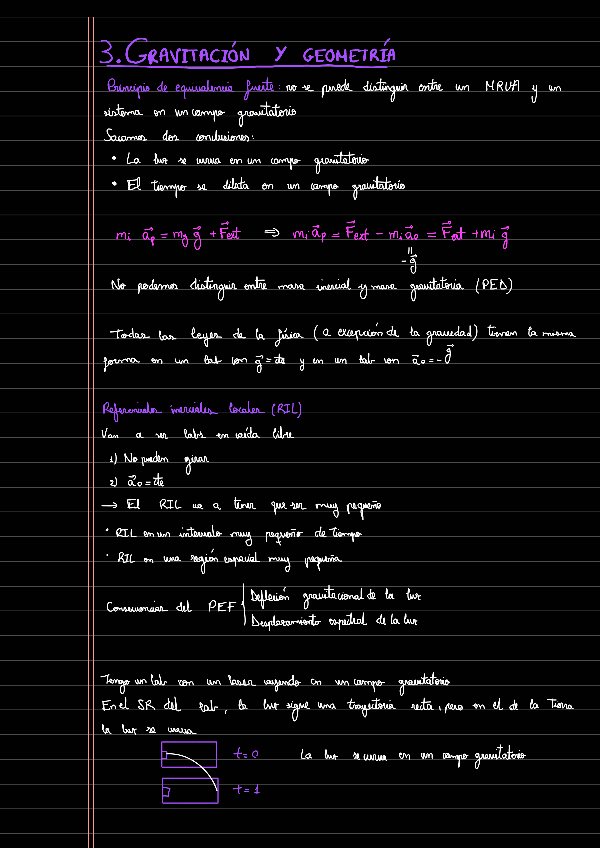 3. GRAVITACIÓN Y GEOMETRÍA
Principio de equivalencia fuerte: no se puede distinguir entre un MRUA y un
sistema en un campo gravitatorio
Sacamos dos conclusiones:
• La luz se curva en un campo gravitatorio
• El tiempo se dilata en un campo gravitatorio
mᵢ a⃗ₚ = m_g g⃗ + F⃗ext ⇒ mᵢ a⃗ₚ = F⃗ext − mᵢ a⃗₀ = F⃗ext + mᵢ g⃗
=
−g⃗
No podemos distinguir entre masa inercial y masa gravitatoria (PED)
Todas las leyes de la física (a excepción de la gravedad) tienen la misma
forma en un lab con g⃗ = cte y en un lab con a⃗₀ = −g⃗
Referenciales inerciales locales (RIL)
Van a ser labs en caída libre
1) No pueden girar
2) a⃗₀ = cte
→ El RIL va a tener que ser muy pequeño
• RIL en un intervalo muy pequeño de tiempo
• RIL en una región espacial muy pequeña
Consecuencias del PEF { Deflexión gravitacional de la luz
Desplazamiento espectral de la luz
Tengo un lab con un láser cayendo en un campo gravitatorio
En el SR del lab, la luz sigue una trayectoria recta, pero en el de la Tierra
la luz se curva
t=0 La luz se curva en un campo gravitatorio
t=1